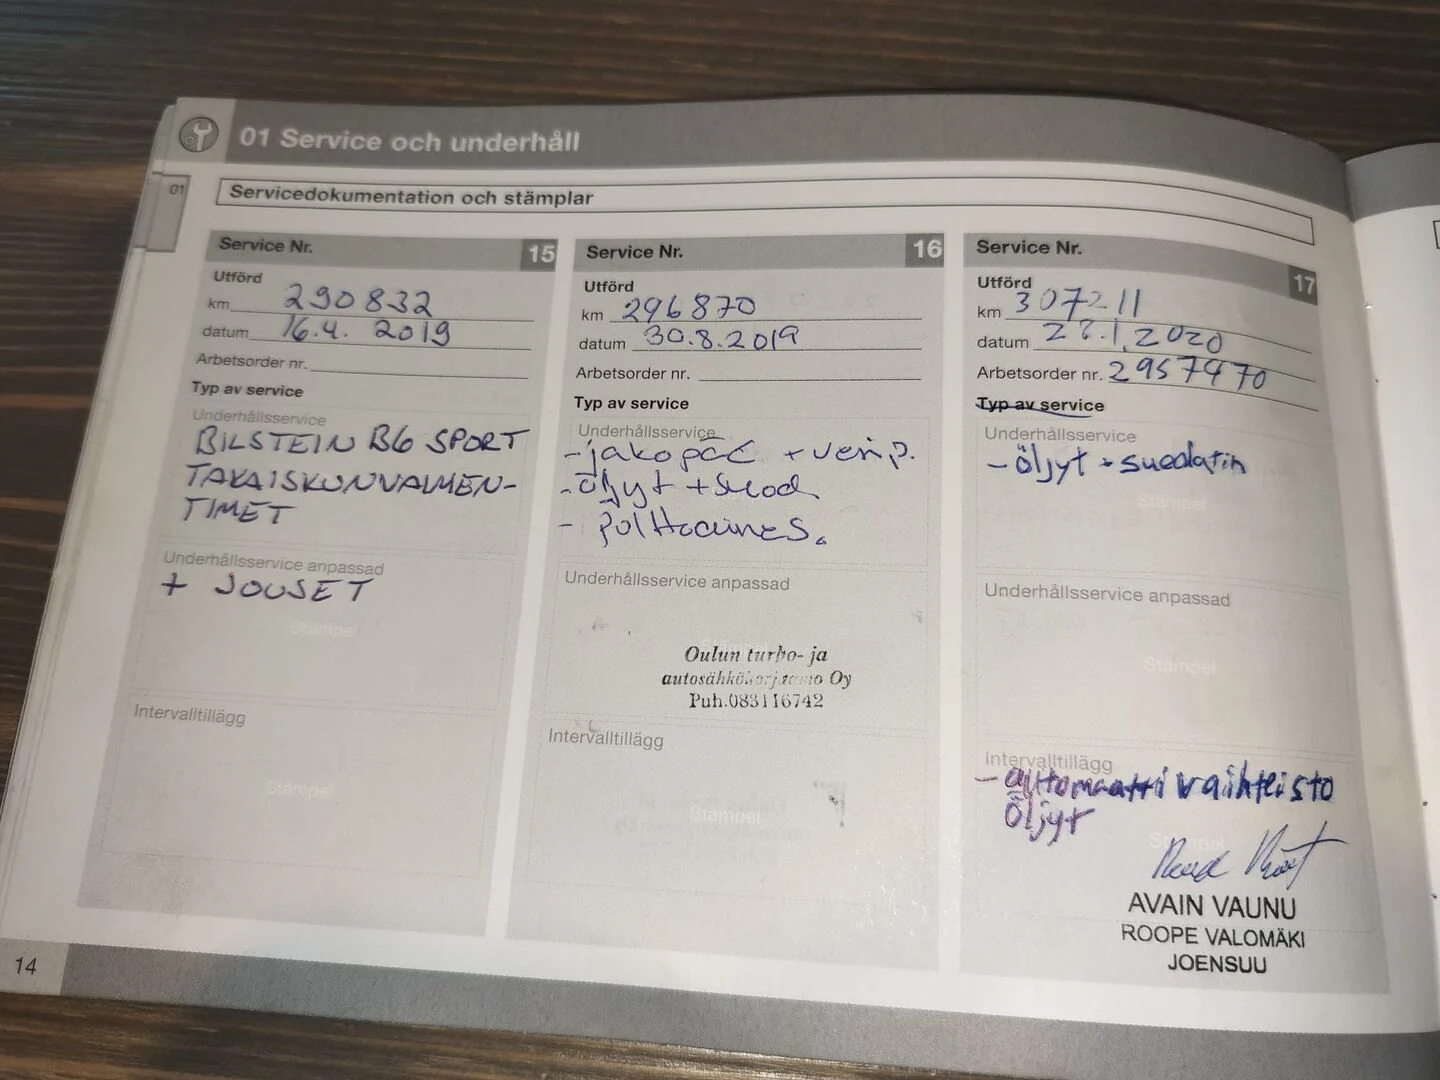 01 Service och underhåll
01
Servicedokumentation och stämplar
Service Nr. 15
Utförd
km 290832
datum 16.4. 2019
Arbetsorder nr.
Typ av service
Underhållsservice
BILSTEIN B6 SPORT
TAKAISKUNVAIMEN-
TIMET
Underhållsservice anpassad
+ JOUSET
Stämpel
Intervalltillägg
Stämpel
Service Nr. 16
Utförd
km 296870
datum 30.8.2019
Arbetsorder nr.
Typ av service
Underhållsservice
- jakopää + vesip.
- öljyt + suod.
- polttoaines.
Underhållsservice anpassad
Oulun turbo- ja
autosähkökorjaamo Oy
Puh.083116742
Intervalltillägg
Stämpel
Service Nr. 17
Utförd
km 307211
datum 28.1.2020
Arbetsorder nr. 2957970
Typ av service
Underhållsservice
- öljyt + suodatin
Stämpel
Underhållsservice anpassad
Stämpel
Intervalltillägg
- automaattivaihteisto
öljyt
Stämpel
AVAIN VAUNU
ROOPE VALOMÄKI
JOENSUU
14